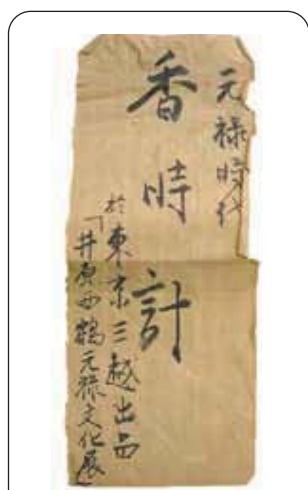 元禄時代
香時計
於東京三越出品
「井原西鶴元禄文化展」